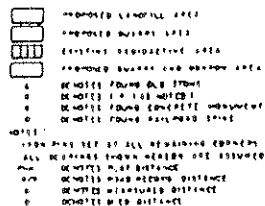 PROPOSED LANDFILL AREA
PROPOSED BUFFER AREA
EXISTING RADIOACTIVE AREA
PROPOSED BUFFER AND BORROW AREA
DENOTES FOUND OLD STONE
DENOTES I.P. (AS NOTED)
DENOTES FOUND CONCRETE MONUMENT
DENOTES FOUND RAILROAD SPIKE
NOTES:
IRON PINS SET AT ALL REMAINING CORNERS
ALL BEARINGS SHOWN HEREON ARE ASSUMED
DENOTES PLAT DISTANCE
DENOTES DEED RECORD DISTANCE
DENOTES MEASURED DISTANCE
DENOTES DEED DISTANCE